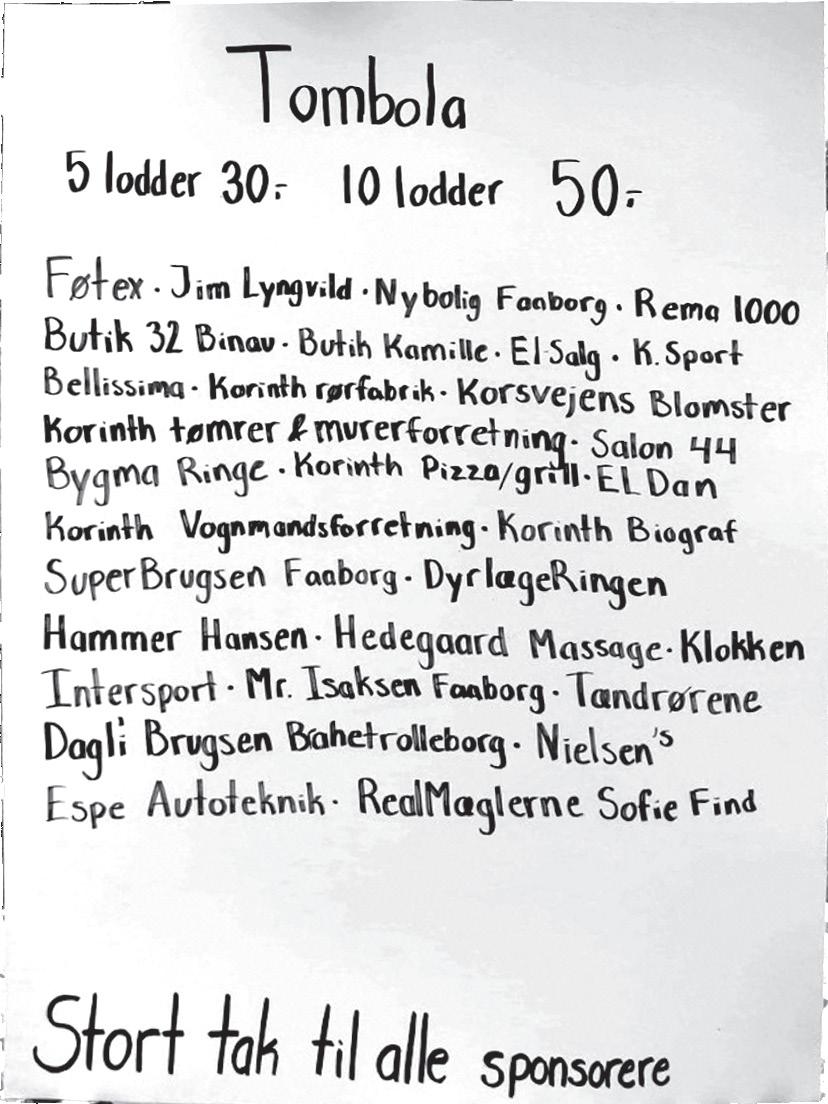 Tombola
5 lodder 30.- 10 lodder 50.-
Føtex · Jim Lyngvild · Nybolig Faaborg · Rema 1000
Butik 32 Binav · Butik Kamille · El-Salg · K. Sport
Bellissima · Korinth rørfabrik · Korsvejens Blomster
Korinth tømrer & murerforretning · Salon 44
Bygma Ringe · Korinth Pizza/grill · EL Dan
Korinth Vognmandsforretning · Korinth Biograf
SuperBrugsen Faaborg · DyrlægeRingen
Hammer Hansen · Hedegaard Massage · Klokken
Intersport · Mr. Isaksen Faaborg · Tandrørene
Dagli Brugsen Brahetrolleborg · Nielsen's
Espe Autoteknik · RealMæglerne Sofie Find
Stort tak til alle sponsorere